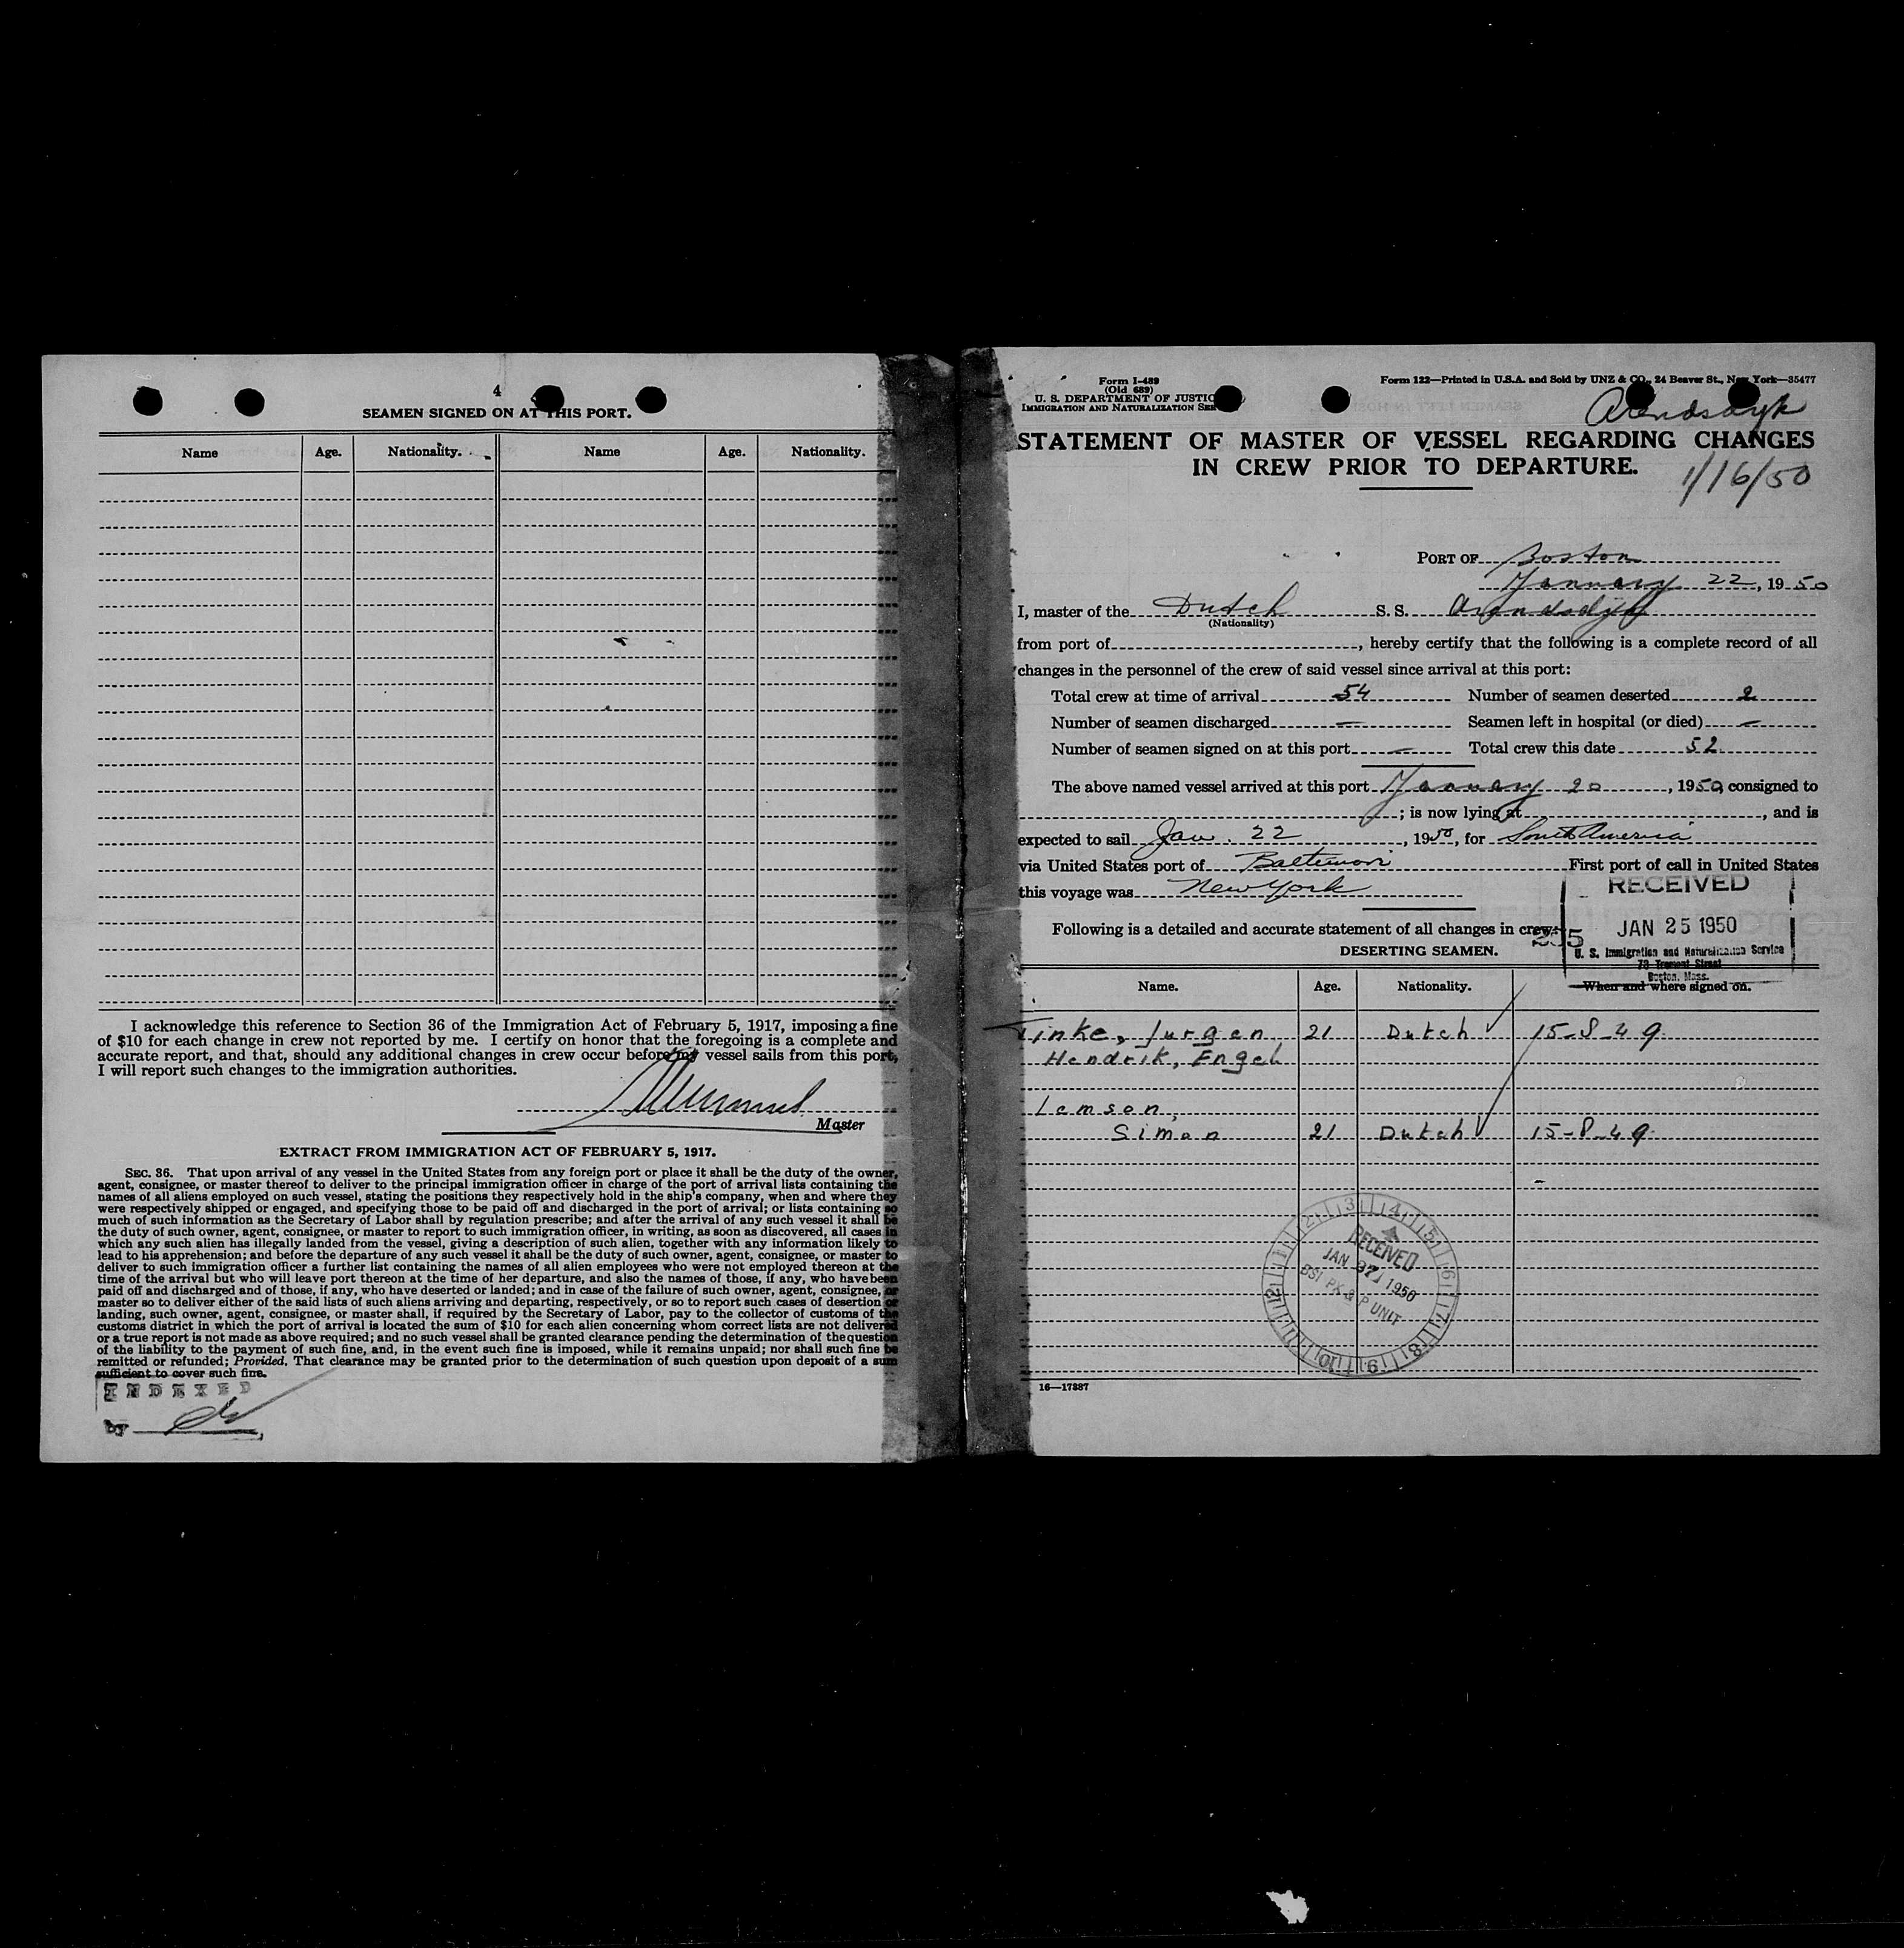 4
SEAMEN SIGNED ON AT THIS PORT.
Name Age. Nationality. Name Age. Nationality.
I acknowledge this reference to Section 36 of the Immigration Act of February 5, 1917, imposing a fine
of $10 for each change in crew not reported by me. I certify on honor that the foregoing is a complete and
accurate report, and that, should any additional changes in crew occur before my vessel sails from this port,
I will report such changes to the immigration authorities.
Master
EXTRACT FROM IMMIGRATION ACT OF FEBRUARY 5, 1917.
SEC. 36. That upon arrival of any vessel in the United States from any foreign port or place it shall be the duty of the owner,
agent, consignee, or master thereof to deliver to the principal immigration officer in charge of the port of arrival lists containing the
names of all aliens employed on such vessel, stating the positions they respectively hold in the ship's company, when and where they
were respectively shipped or engaged, and specifying those to be paid off and discharged in the port of arrival; or lists containing so
much of such information as the Secretary of Labor shall by regulation prescribe; and after the arrival of any such vessel it shall be
the duty of such owner, agent, consignee, or master to report to such immigration officer, in writing, as soon as discovered, all cases in
which any such alien has illegally landed from the vessel, giving a description of such alien, together with any information likely to
lead to his apprehension; and before the departure of any such vessel it shall be the duty of such owner, agent, consignee, or master to
deliver to such immigration officer a further list containing the names of all alien employees who were not employed thereon at the
time of the arrival but who will leave port thereon at the time of her departure, and also the names of those, if any, who have been
paid off and discharged and of those, if any, who have deserted or landed; and in case of the failure of such owner, agent, consignee, or
master so to deliver either of the said lists of such aliens arriving and departing, respectively, or so to report such cases of desertion or
landing, such owner, agent, consignee, or master shall, if required by the Secretary of Labor, pay to the collector of customs of the
customs district in which the port of arrival is located the sum of $10 for each alien concerning whom correct lists are not delivered
or a true report is not made as above required; and no such vessel shall be granted clearance pending the determination of the question
of the liability to the payment of such fine, and, in the event such fine is imposed, while it remains unpaid; nor shall such fine be
remitted or refunded; Provided, That clearance may be granted prior to the determination of such question upon deposit of a sum
sufficient to cover such fine.
INDEXED
by
Form I-489
(Old 689)
U. S. DEPARTMENT OF JUSTICE
IMMIGRATION AND NATURALIZATION SER
Form 122—Printed in U.S.A. and Sold by UNZ & CO., 24 Beaver St., New York—35477
Arendsdyk
STATEMENT OF MASTER OF VESSEL REGARDING CHANGES
IN CREW PRIOR TO DEPARTURE.
1/16/50
PORT OF Boston
January 22, 1950
I, master of the Dutch S. S. Arendsdyk
(Nationality)
from port of , hereby certify that the following is a complete record of all
changes in the personnel of the crew of said vessel since arrival at this port:
Total crew at time of arrival 54 Number of seamen deserted 2
Number of seamen discharged — Seamen left in hospital (or died) —
Number of seamen signed on at this port — Total crew this date 52
The above named vessel arrived at this port January 20, 1950, consigned to
; is now lying at , and is
expected to sail Jan. 22, 1950, for South America
via United States port of Baltimore First port of call in United States
this voyage was New York
RECEIVED
Following is a detailed and accurate statement of all changes in crew:
JAN 25 1950
U. S. Immigration and Naturalization Service
73 Tremont Street
Boston, Mass.
DESERTING SEAMEN.
Name. Age. Nationality. When and where signed on.
Tinke, Jurgen 21 Dutch 15-8-49
Hendrik, Engel
Lemson,
Simon 21 Dutch 15-8-49
RECEIVED
JAN 27 1950
BSI PX & P UNIT
16—17887